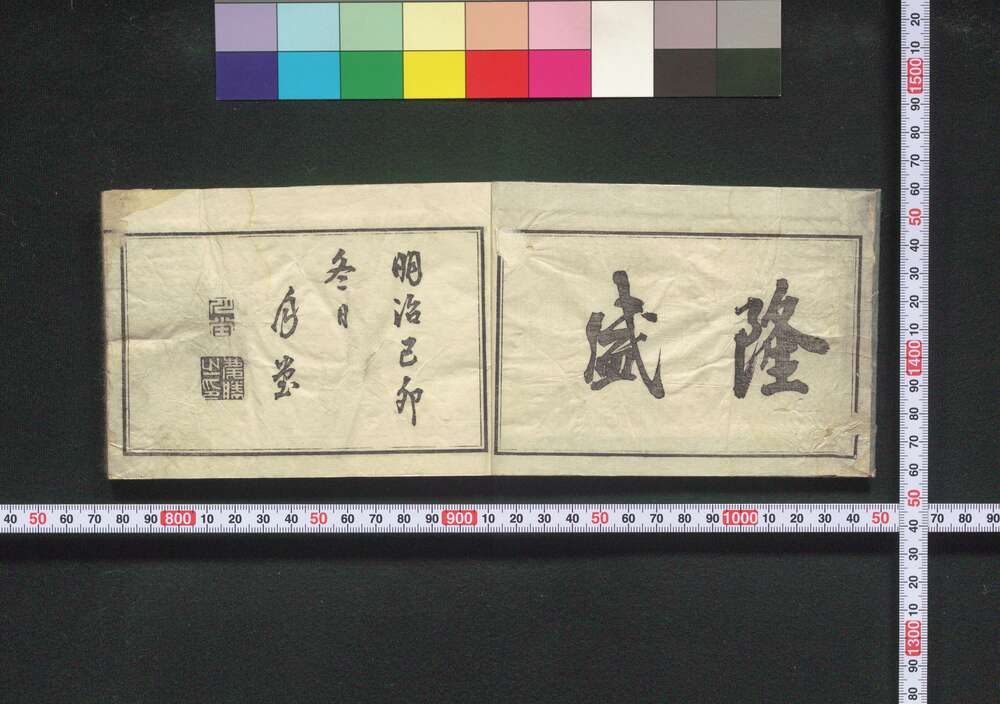 隆盛
明治己卯
冬日
月堂
20
1500
90
80
70
60
50
40
30
20
10
1400
90
80
70
60
50
40
20
10
1300
90
80
40 50 60 70 80 90 800 10 20 30 40 50 60 70 80 90 900 10 20 30 40 50 60 70 80 90 1000 10 20 30 40 50 70 80 90